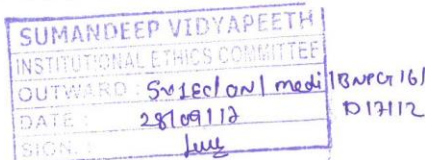 SUMANDEEP VIDYAPEETH
INSTITUTIONAL ETHICS COMMITTEE
OUTWARD : SV1EC/ON/medi/BNPG16/
D17112
DATE : 28/09/12
SIGN. :